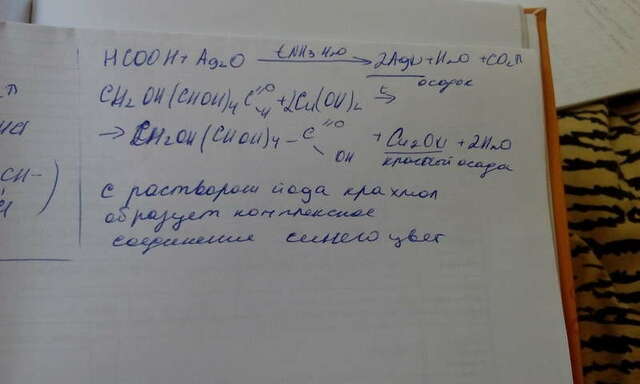 HCOOH + Ag2O t, NH3 H2O → 2Ag↓ + H2O + CO2↑
осадок
CH2OH(CHOH)4 C =O -H + 2Cu(OH)2 t →
→ CH2OH(CHOH)4 – C =O OH + Cu2O↓ + 2H2O
красный осадо
с раствором йода крахмол
образует комплексное
соединение синего цвет
CH-